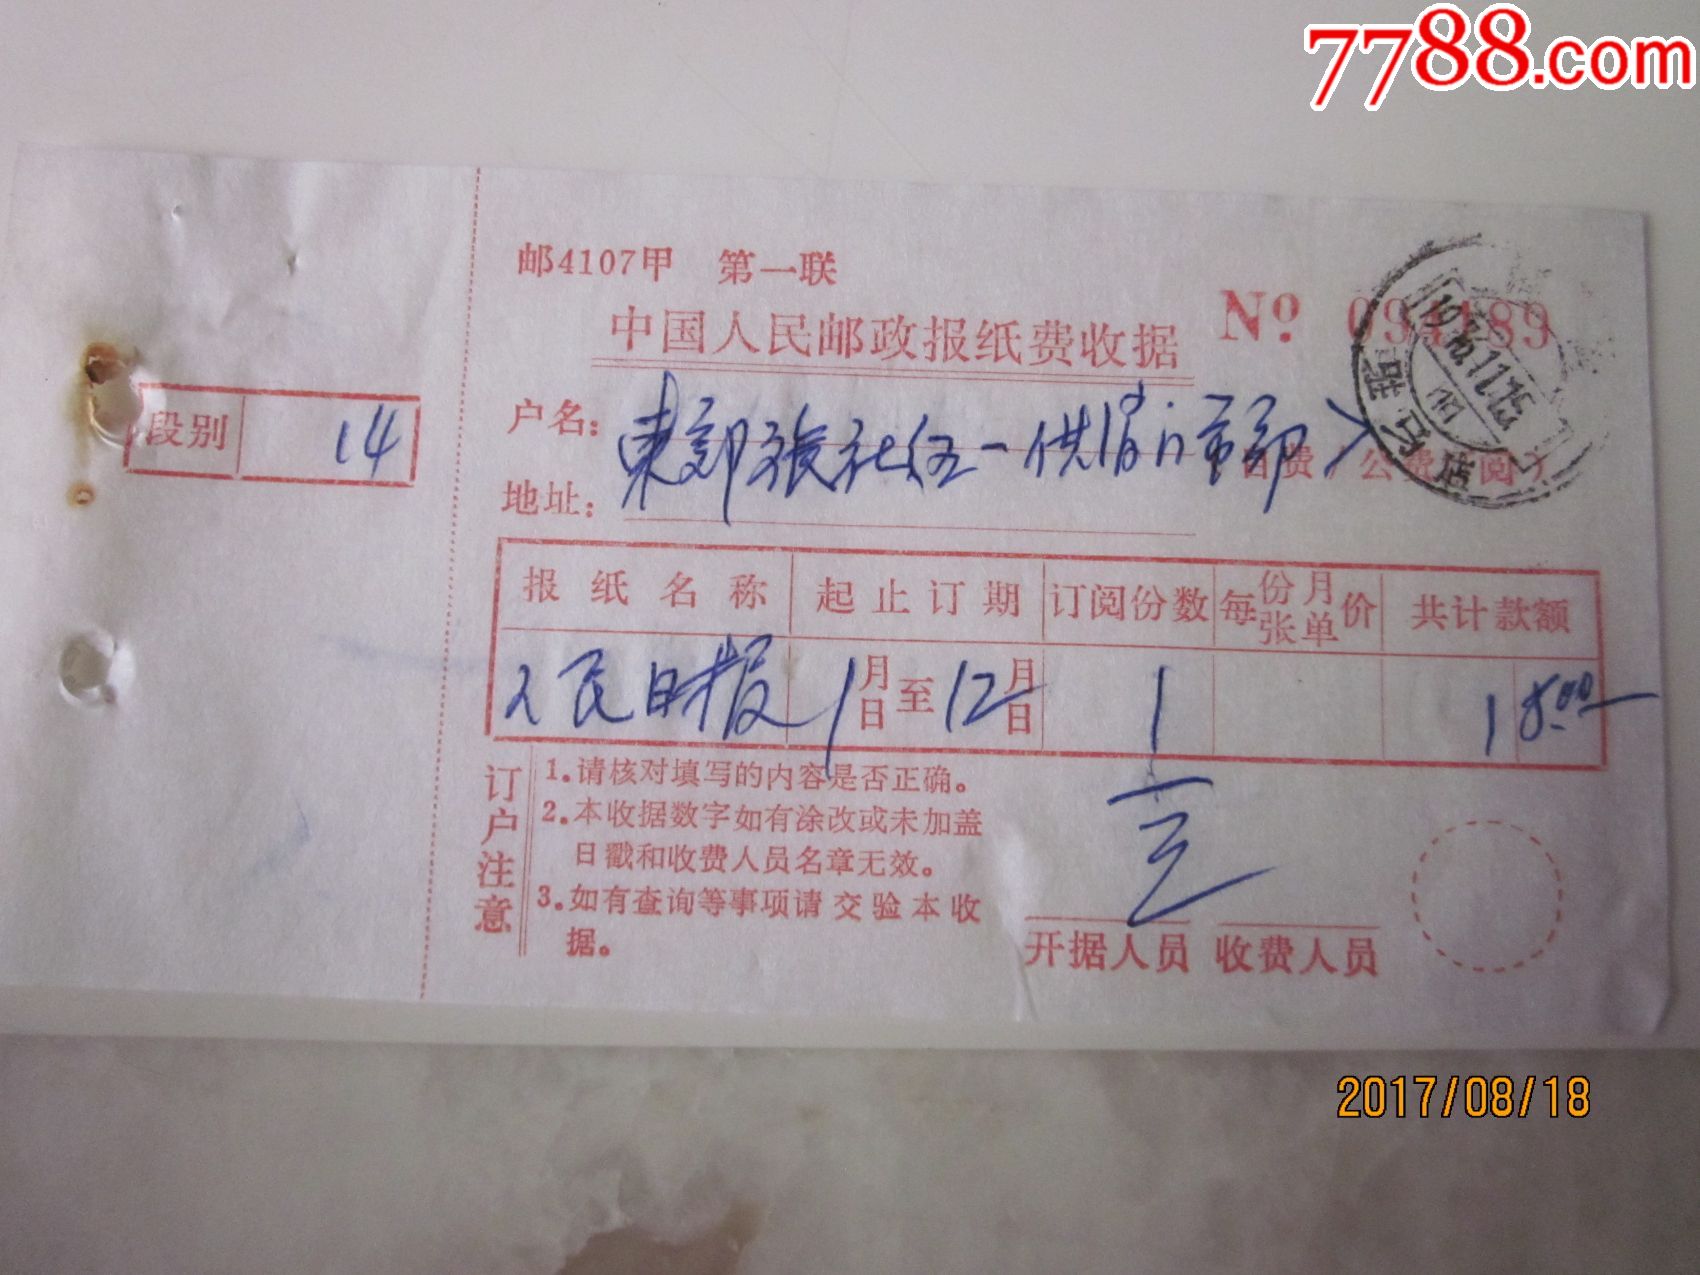 7788.com
邮4107甲 第一联
中国人民邮政报纸费收据
No 094189
段别 14
户名:
地址:
東郊张社伍一供销门市部
自费/公费订阅)
驻马店
报纸名称 起止订期 订阅份数 每份张月单价 共计款额
人民日报 1月日至12月日 1 18.00
订户注意
1.请核对填写的内容是否正确。
2.本收据数字如有涂改或未加盖
日戳和收费人员名章无效。
3.如有查询等事项请交验本收
据。
开据人员 收费人员
2017/08/18